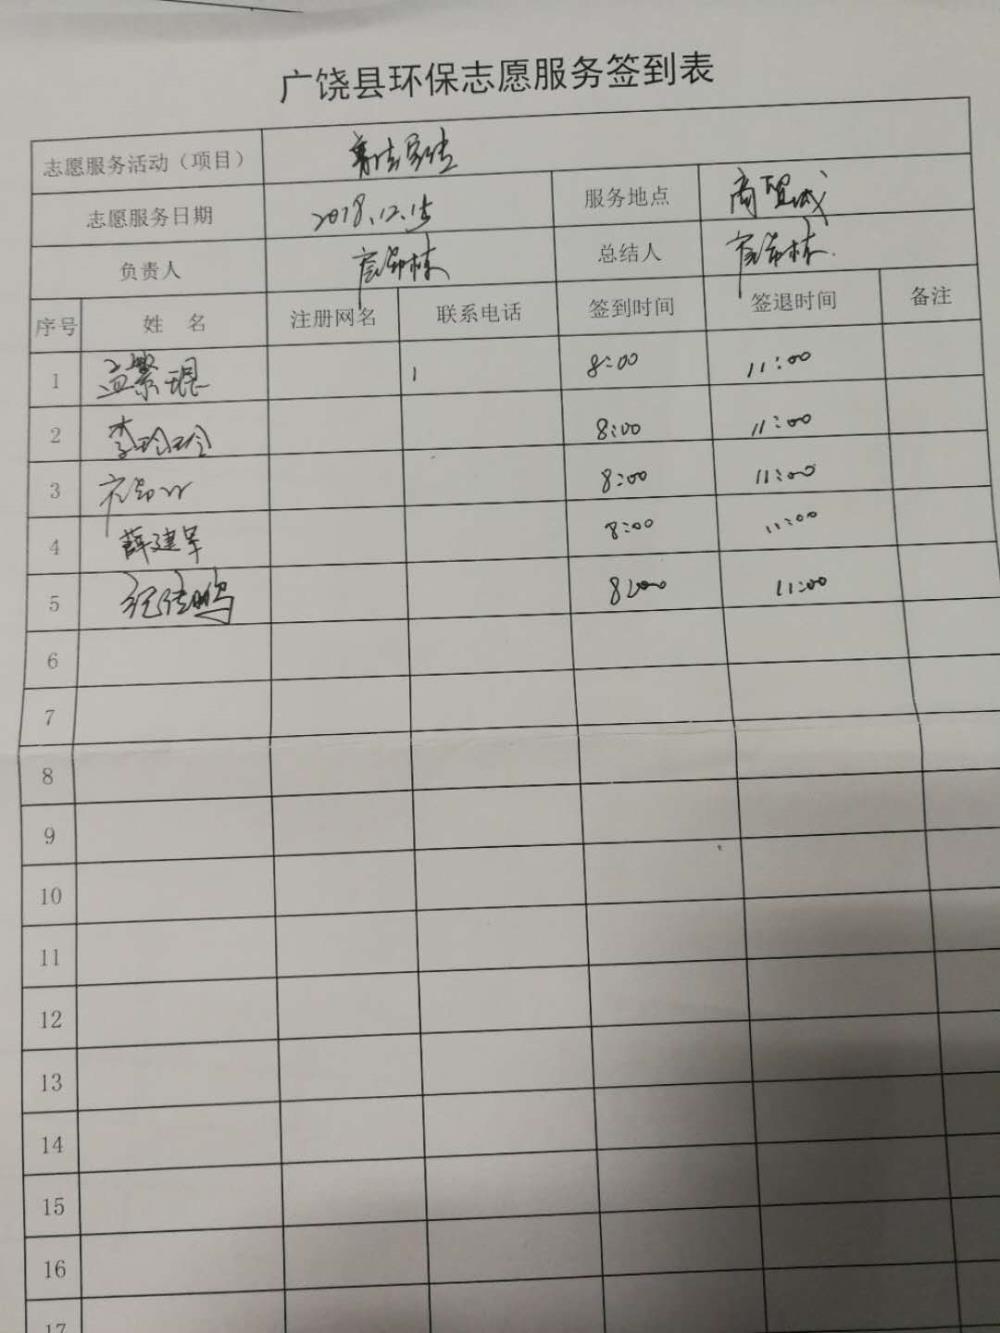 广饶县环保志愿服务签到表
志愿服务活动（项目） 普法宣传
志愿服务日期 2018.12.15 服务地点 商贸城
负责人 总结人
序号 姓 名 注册网名 联系电话 签到时间 签退时间 备注
1 孟繁琨 1 8:00 11:00
2 李玲玲 8:00 11:00
3 8:00 11:00
4 薛建军 8:00 11:00
5 8:00 11:00
6
7
8
9
10
11
12
13
14
15
16
17